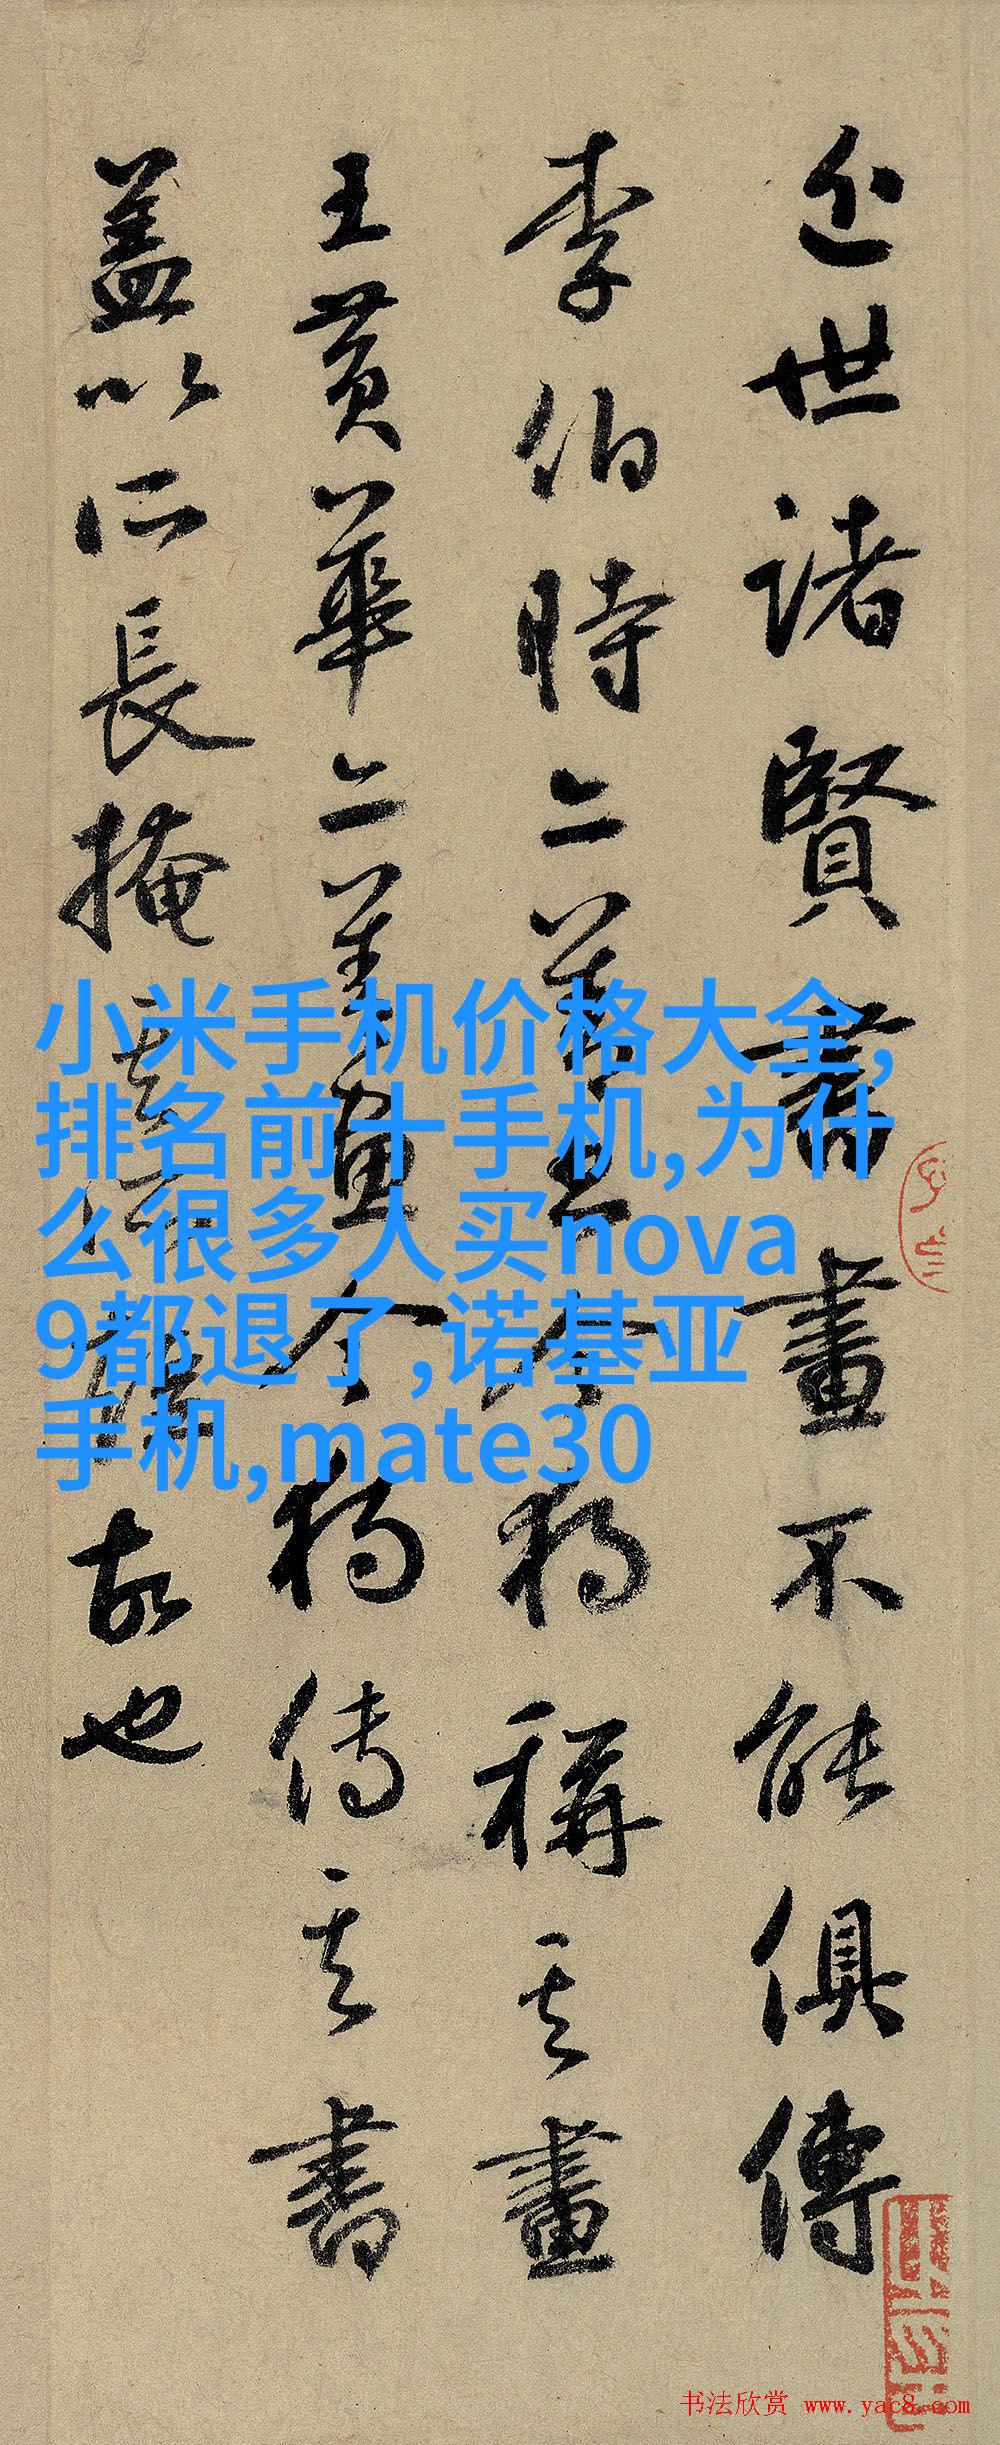 近世諸賢書畫不能俱傳
李伯時二今獨稱其畫
王黃華二今獨傳其書
蓋以所長掩其故也
小米手机价格大全,
排名前十手机,为什
么很多人买nova
9都退了,诺基亚
手机,mate30
书法欣赏 www.yac8.com